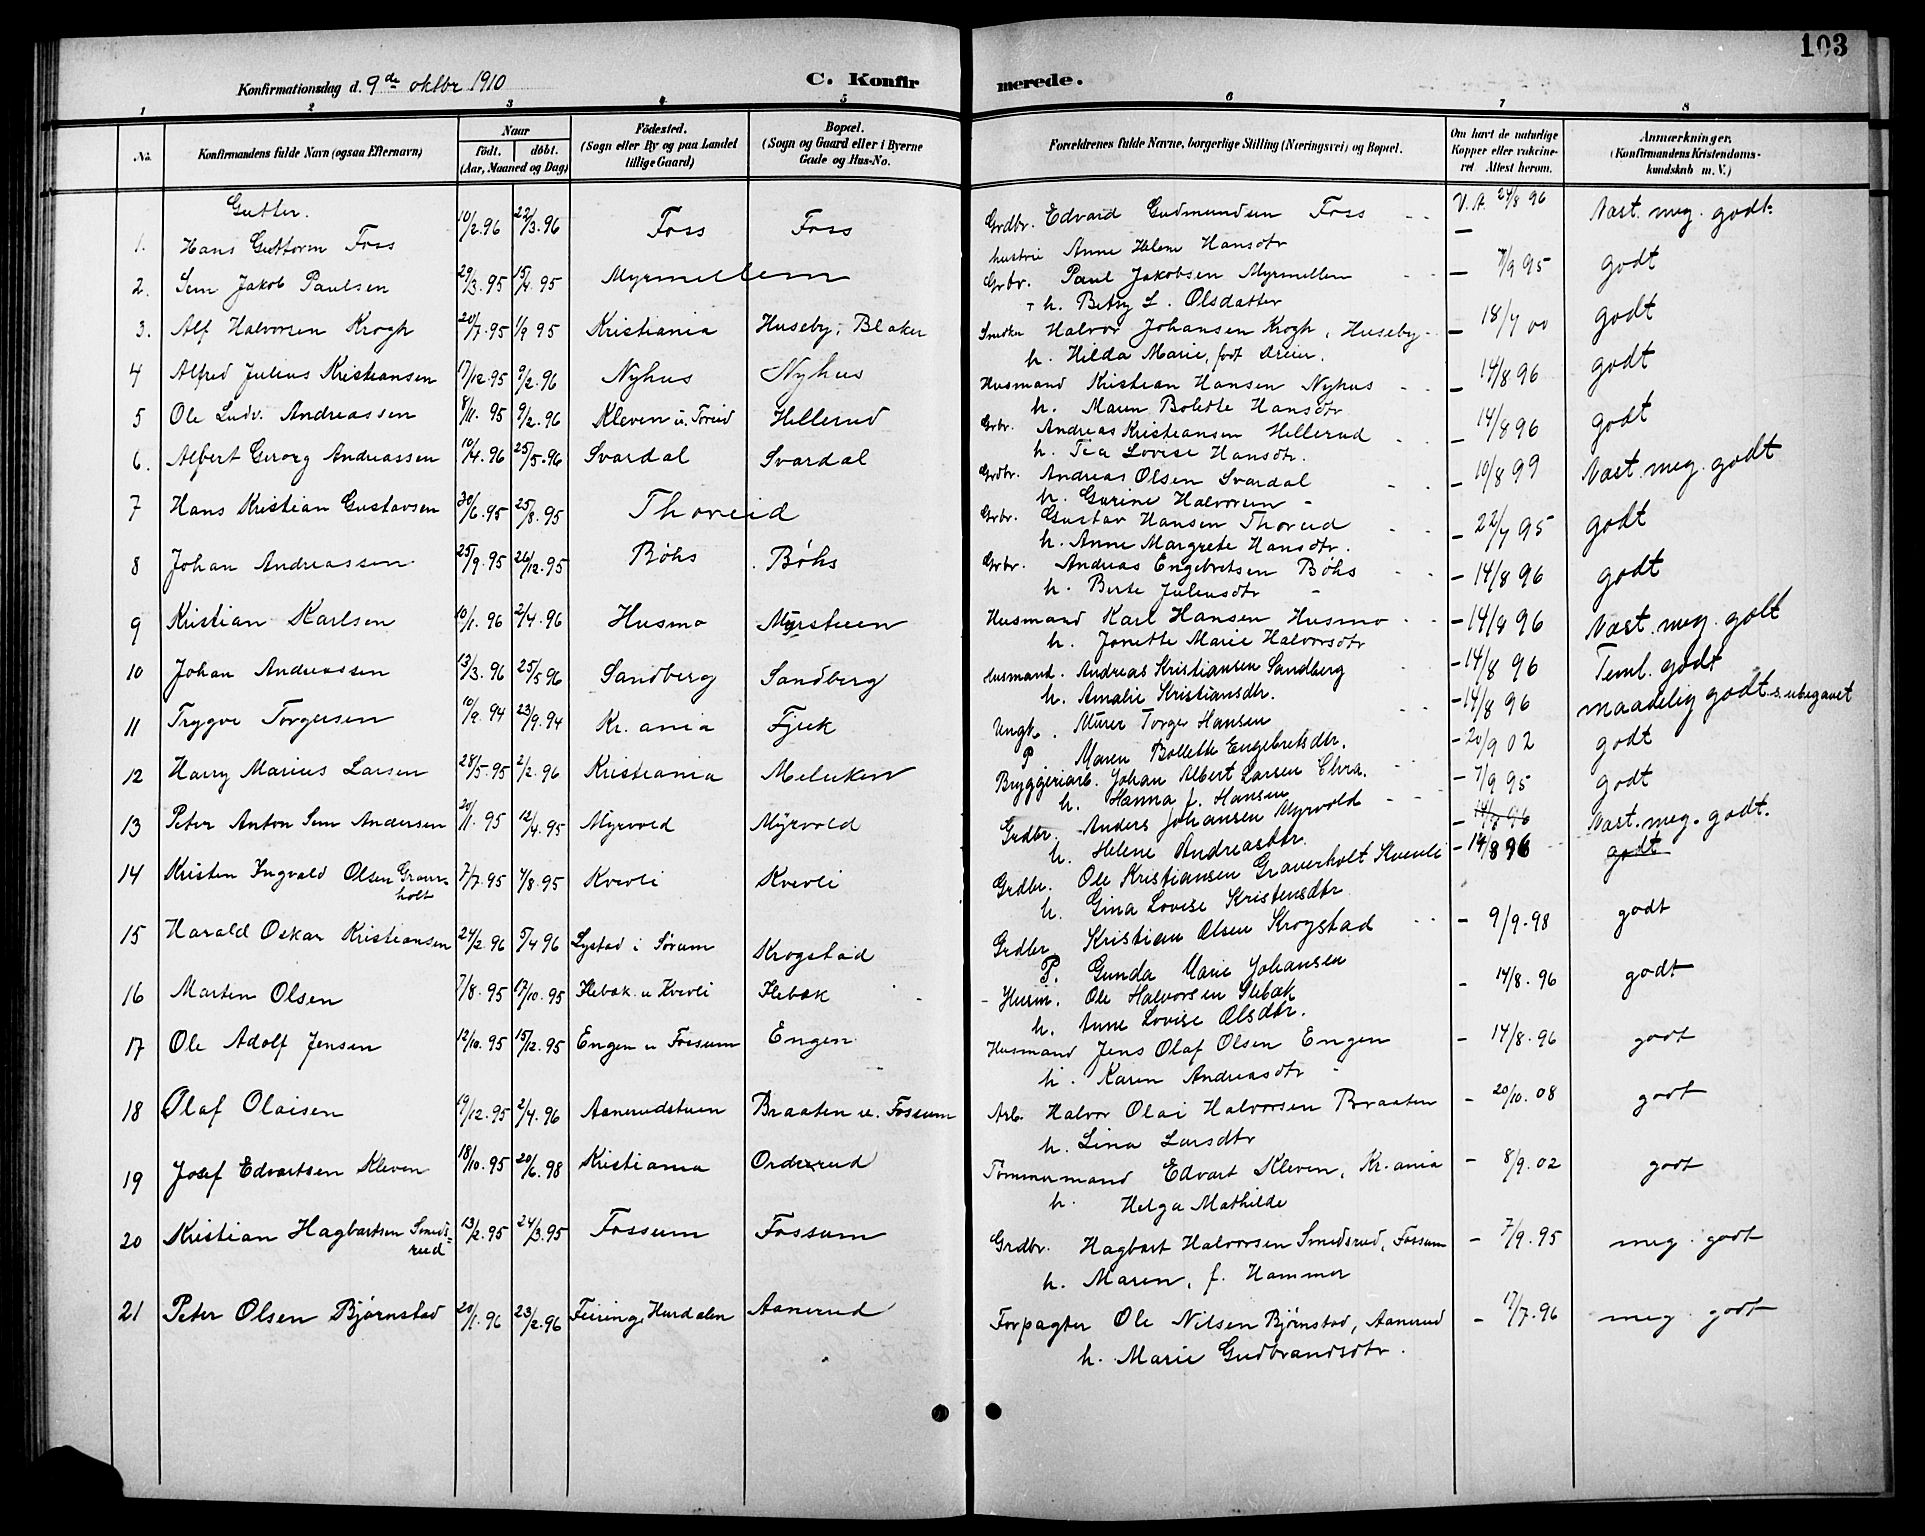 103
Konfirmationsdag d. 9de oktbr 1910
C. Konfirmerede.
1 2 3 4 5 6 7 8
No.
Konfirmandens fulde Navn (ogsaa Efternavn)
Naar
födt. döbt.
(Aar, Maaned og Dag)
Födested.
(Sogn eller By og paa Landet
tillige Gaard)
Bopæl.
(Sogn og Gaard eller i Byerne
Gade og Hus-No.
Forældrenes fulde Navne, borgerlige Stilling (Næringsvei) og Bopæl.
Om havt de naturlige
Kopper eller vakcine-
ret Attest herom.
Anmærkninger,
(Konfirmandens Kristendoms-
kundskab m. V.)
Gutter.
1. Hans Guttorm Foss 10/2.96 22/3.96 Foss Foss Grdbr. Edvard Gudmundsen Foss V.A. 24/8 96 Næst. meg. godt.
hustrú Anne Helene Hansdtr
2. Sem Jakob Paulsen 29/3.95 15/4.95 Myrmellem Grbr. Paul Jakobsen Myrmellem - 7/9 95 godt
h. Betsy L. Olsdatter
3. Alf Halvorsen Krogh 20/7.95 1/9 95 Kristiania Huseby, Blaker Snedker Halvor Johansen Krogh, Huseby - 18/7 00 godt
h. Hilda Marie, født Dreier.
4 Alfred Julius Kristiansen 17/12.95 9/2.96 Nyhus Nyhus Husmand Kristian Hansen Nyhus - 14/8 96 godt
h. Maren Bolette Hansdtr
5 Ole Ludv. Andreassen 8/11.95 9/2.96 Kleven u. Toreid Hellerud Grbr. Andreas Kristiansen Hellerud - 14/8 96 godt
h. Tea Lovise Hansdtr.
6. Albert Georg Andreassen 10/4.96 25/5.96 Svardal Svardal Grdbr. Andreas Olsen Svardal - 10/8 99 Næst. meg. godt
h. Gurine Halvorsen -
7 Hans Kristian Gustavsen 30/6.95 25/8.95 Thoreid Grbr. Gustav Hansen Thoreid - 22/7 95 godt
h. Anne Margrete Hansdtr.
8 Johan Andreassen 25/9.95 26/12.95 Böhs Böhs Grbr. Andreas Engebretsen Böhs - 14/8 96 godt
h. Berte Juliusdtr -
9 Kristian Karlsen 10/1.96 2/4.96 Husmo Myrstuen Husmand Karl Hansen Husmo - 14/8 96 Næst. meg. godt
h. Jonette Marie Halvorsdtr
10 Johan Andreassen 13/3.96 25/5 96 Sandberg Sandberg Husmand. Andreas Kristiansen Sandberg - 14/8 96 Teml. godt
h. Amalie Kristiansdtr.
11 Trygve Torgersen 10/9.94 23/9.94 Kr.ania Fjuk Ungk. Murer Torger Hansen - 14/8 96 maadelig godt s. ubegavet
P Maren Bollette Engebretsdtr. - 20/9 02 godt
12 Harry Marius Larsen 28/5.95 2/2.96 Kristiania Bryggeriarb. Johan Albert Larsen Chra. - 7/9 95 godt
h. Hanna f. Hansen
13 Peter Anton Sem Andersen 20/1.95 12/4.95 Myrvold Myrvold Grdbr. Anders Johansen Myrvold - 14/8 96 Næst. meg. godt.
h. Helene Andreasdtr.
14 Kristen Ingvald Olsen Graver-
holt 7/7.95 4/8.95 Kverli Kverli Grdbr. Ole Kristiansen Graverholt Kverli - 14/8 96 godt
h. Gina Lovise Kristensdtr
15 Harald Oskar Kristiansen 24/2.96 5/4 96 Lystad i Sørum Krogstad Grdbr. Kristian Olsen Krogstad - 9/9.98 godt
P. Gunda Marie Johansen
16 Marten Olsen 7/8.95 17/10.95 Slebæk u Kverli Slebæk Husm. Ole Halvorsen Slebæk - 14/8.96 godt
h. Anne Lovise Olsdtr.
17 Ole Adolf Jensen 12/10.95 15/12.95 Engen u Fossum Engen Husmand Jens Olaf Olsen Engen - 14/8.96 godt
h. Karen Andreasdtr
18 Olaf Olaisen 19/12.95 2/4.96 Aanerudstuen Braaten u. Fossum Arb. Halvor Olai Halvorsen Braaten - 20/10.08 godt
h. Lina Larsdtr
19 Josef Edvartsen Kleven 18/10.95 20/6.98 Kristiania Orderud Tømmermand Edvart Kleven, Kr.ania - 8/9.02 godt
h. Helga Mathilde
20 Kristian Hagbartsen Smeds-
rud 13/2.95 24/3.95 Fossum Fossum Grdbr. Hagbart Halvorsen Smedsrud, Fossum - 7/9.95 meg. godt
h. Maren, f. Hammer
21 Peter Olsen Bjørnstad 20/1.96 23/2.96 Feiring, Hurdalen Aanerud Forpagter Ole Nilsen Bjørnstad, Aanerud - 17/7.96 meg. godt
h. Marie Gudbrandsdtr.